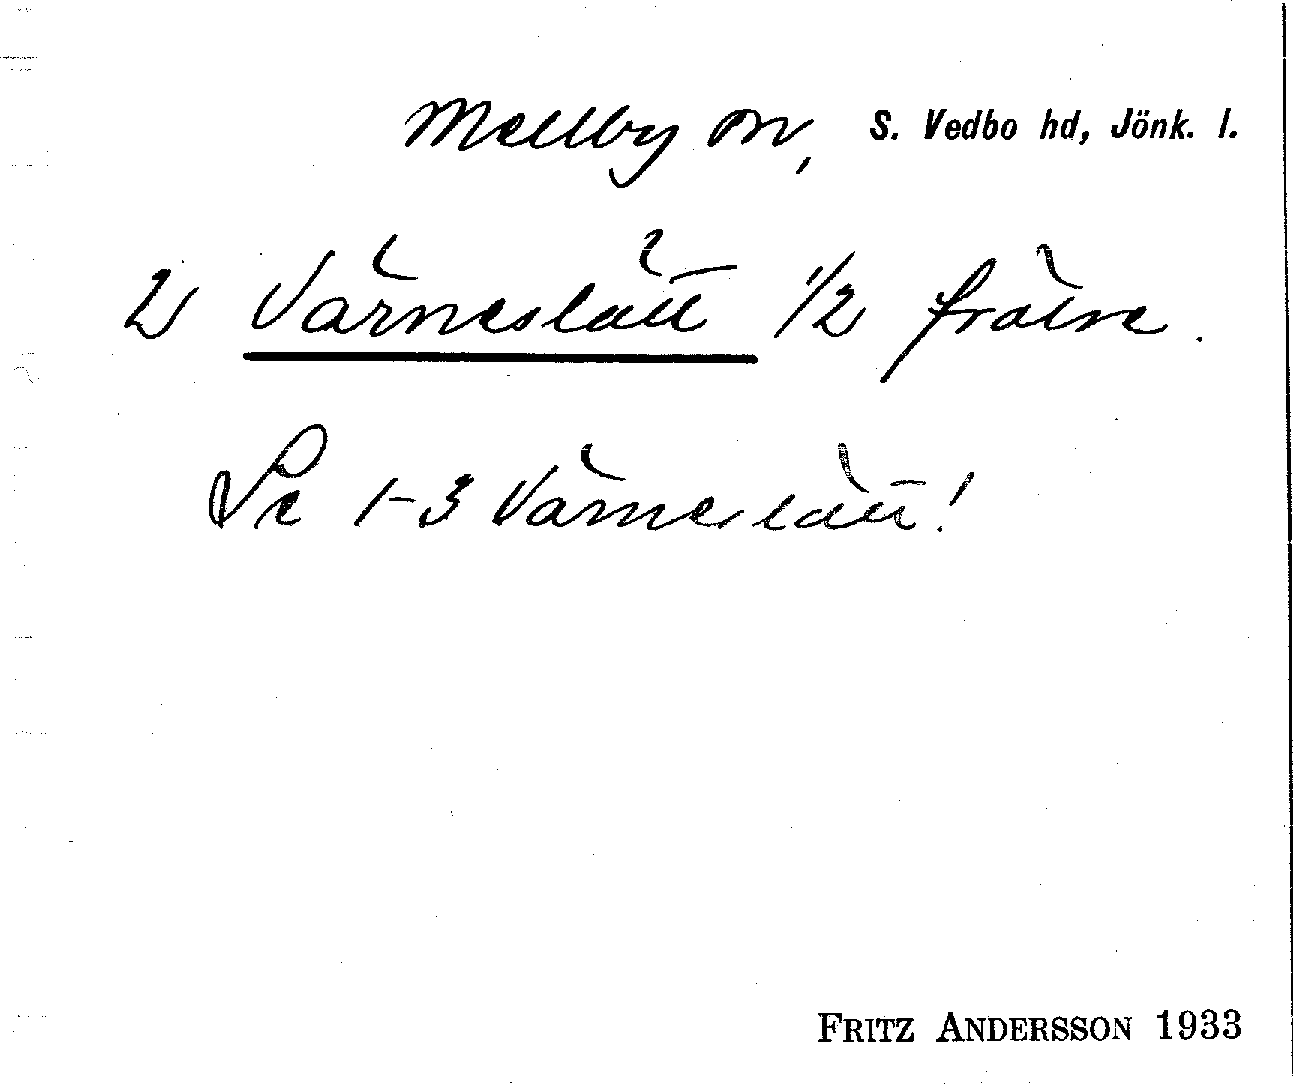 Mellby sn, S. Vedbo hd, Jönk. l.
2 Värneslätt 1/2 frälse.
Se 1-3 Värneslätt!
FRITZ ANDERSSON 1933